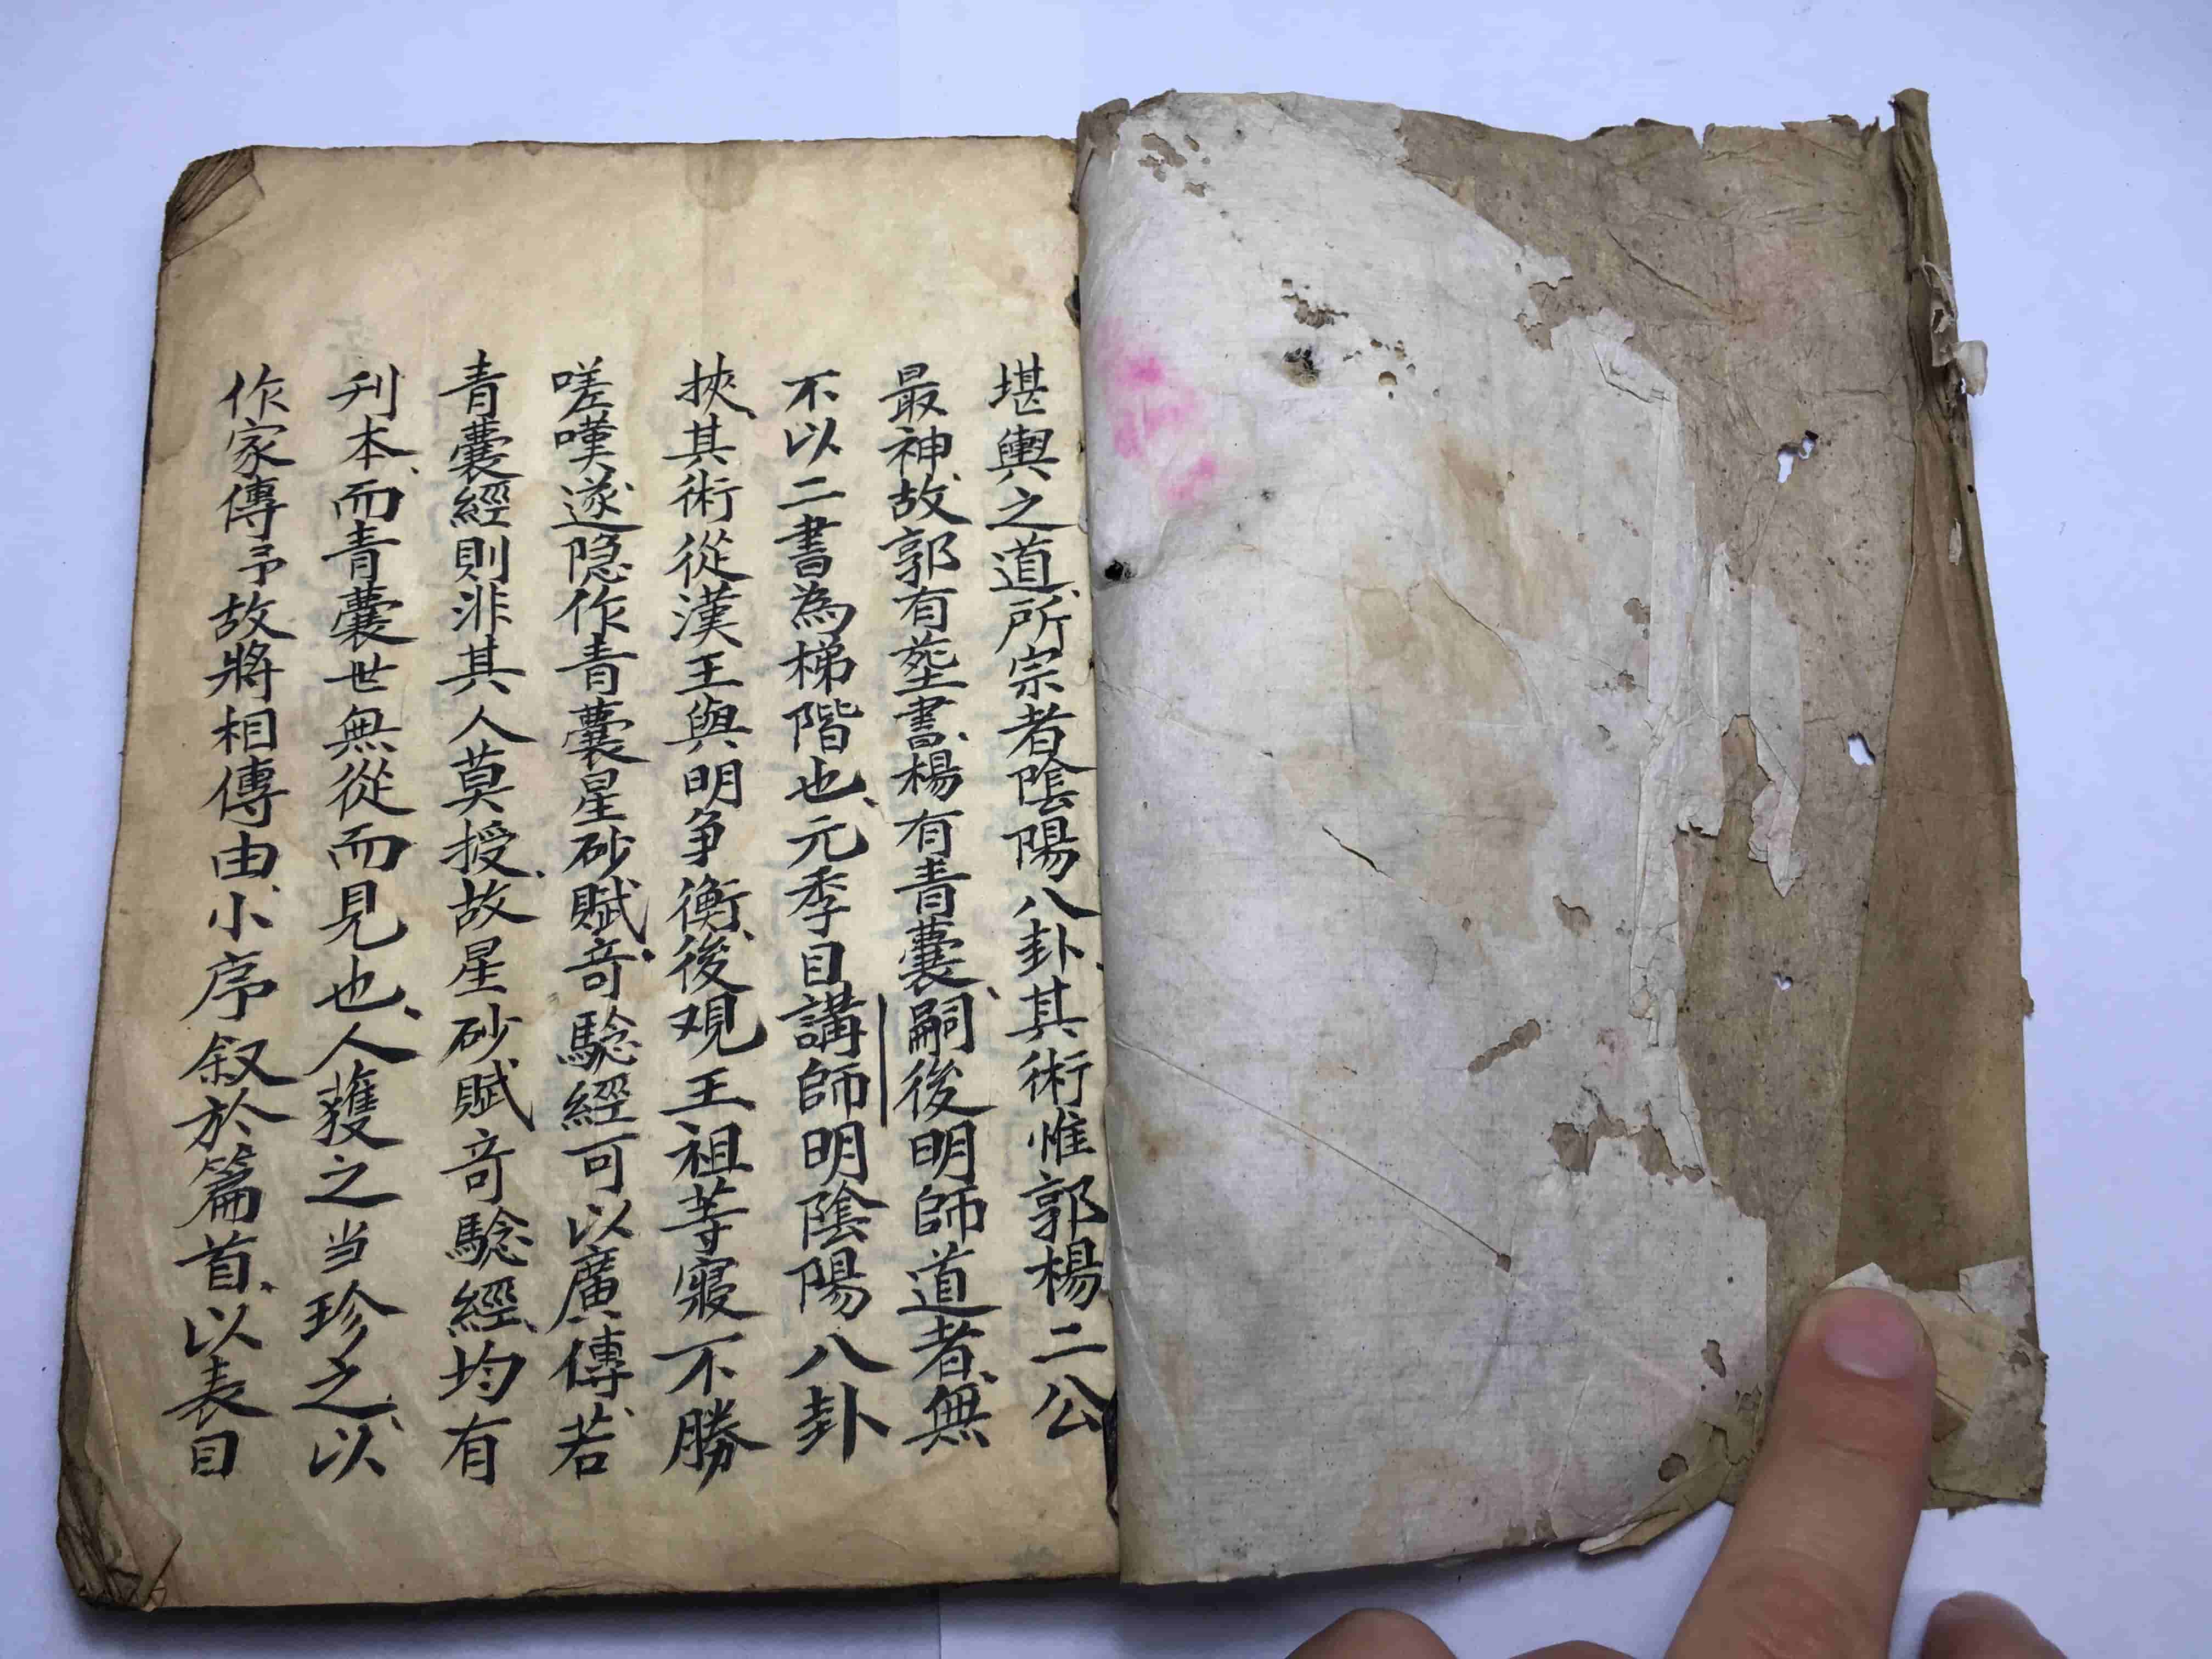 堪輿之道、所宗者陰陽八卦、其術惟郭楊二公
最神、故郭有塟書、楊有青囊、嗣後明師道者、無
不以二書為梯階也、元季目講師明陰陽八卦
挾、其術從漢王與明争衡、後观王祖等寢不勝
嗟嘆、遂隐作青囊星砂賦、竒騐經可以廣、傳、若
青囊經則非其人莫授、故星砂賦竒騐經、均有
刊本、而青囊世無從而見也、人蒦之当珍之、以
作家傳予故將相傳由、小序叙於篇首、以表目